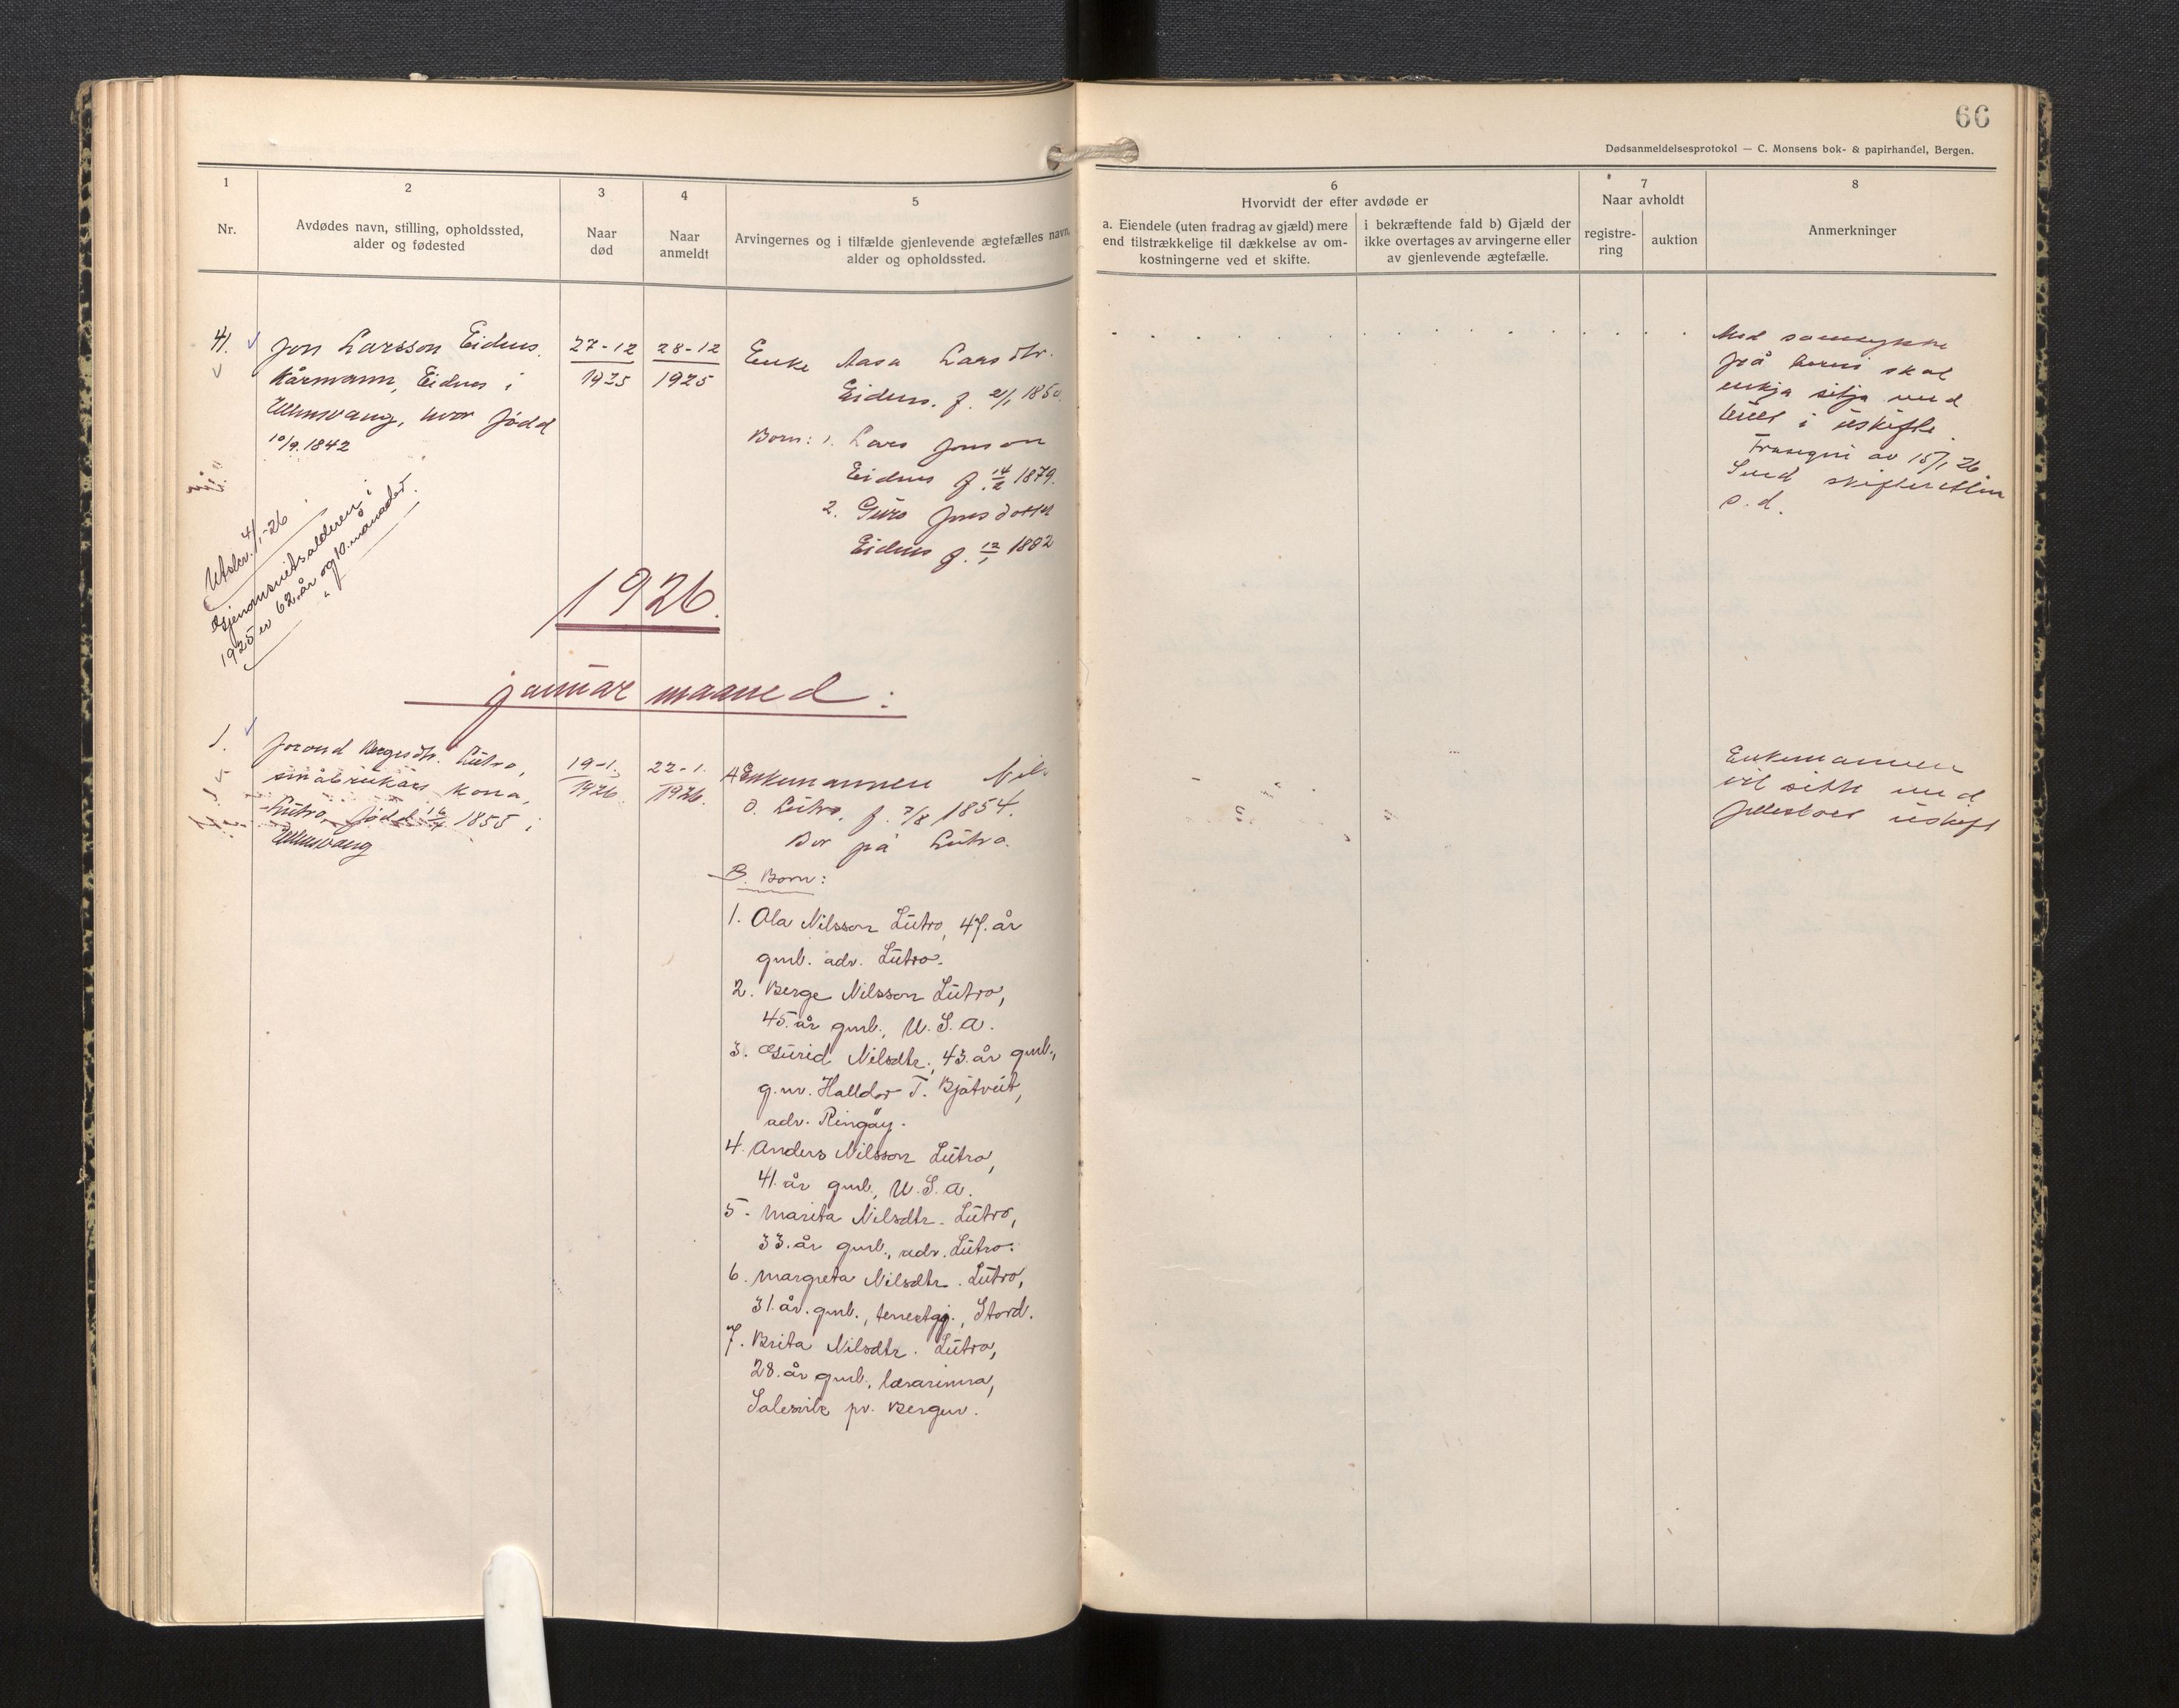 66
Dødsanmeldelsesprotokol — C. Monsens bok- & papirhandel, Bergen.
1
Nr.
2
Avdødes navn, stilling, opholdssted,
alder og fødested
3
Naar
død
4
Naar
anmeldt
5
Arvingernes og i tilfælde gjenlevende ægtefælles navn,
alder og opholdssted.
6
Hvorvidt der efter avdøde er
a. Eiendele (uten fradrag av gjæld) mere
end tilstrækkelige til dækkelse av om-
kostningerne ved et skifte.
i bekræftende fald b) Gjæld der
ikke overtages av arvingerne eller
av gjenlevende ægtefælle.
7
Naar avholdt
registre-
ring
auktion
8
Anmerkninger
41.
Jon Larsson Eidnes,
Kårmann, Eidnes i
Ullensvang, hvor fødd
10/9.1842
27-12
1925
28-12
1925
Enke Aasa Larsdtr.
Eidnes. f. 2/1 1850
Born: 1. Lars Jonson
Eidnes f. 14/2 1879.
2. Guro Jonsdotter
Eidnes f. 12/1 1882
Med samtykke
frå borni skal
enkja sitja med
buet i uskifte.
av 15/1 26.
Send skifteretten
s.d.
Utskr. 4/1-26
Gjenomsnitsalderen i
1925 er 62 år og 10 månader.
1926.
januar maaned:
1.
Jorond Bergesdtr. Lutro,
småbrukars kona,
Lutro, fødd 1855 i
Ullensvang
19-1.
1926.
22-1.
1926.
A Enkemannen Nils
O. Lutro, f. 7/8 1854.
Bor på Lutro.
B. Born:
1. Ola Nilsson Lutro, 47. år
gml. adr. Lutro.
2. Berge Nilsson Lutro,
45. år gml., U. S. A.
3. Gurid Nilsdtr., 43. år gml.,
g.m. Halldor T. Bjotveit,
adr. Ringøy.
4. Anders Nilsson Lutro,
41. år gml., U. S. A.
5. Marita Nilsdtr. Lutro,
33. år gml., adr. Lutro.
6. Margreta Nilsdtr. Lutro,
31. år. gml., Stord.
7. Brita Nilsdtr. Lutro,
28. år gml., lærarinna,
Salesvik pr. Bergen.
Enkemannen
vil sitte med
fellesboet uskift